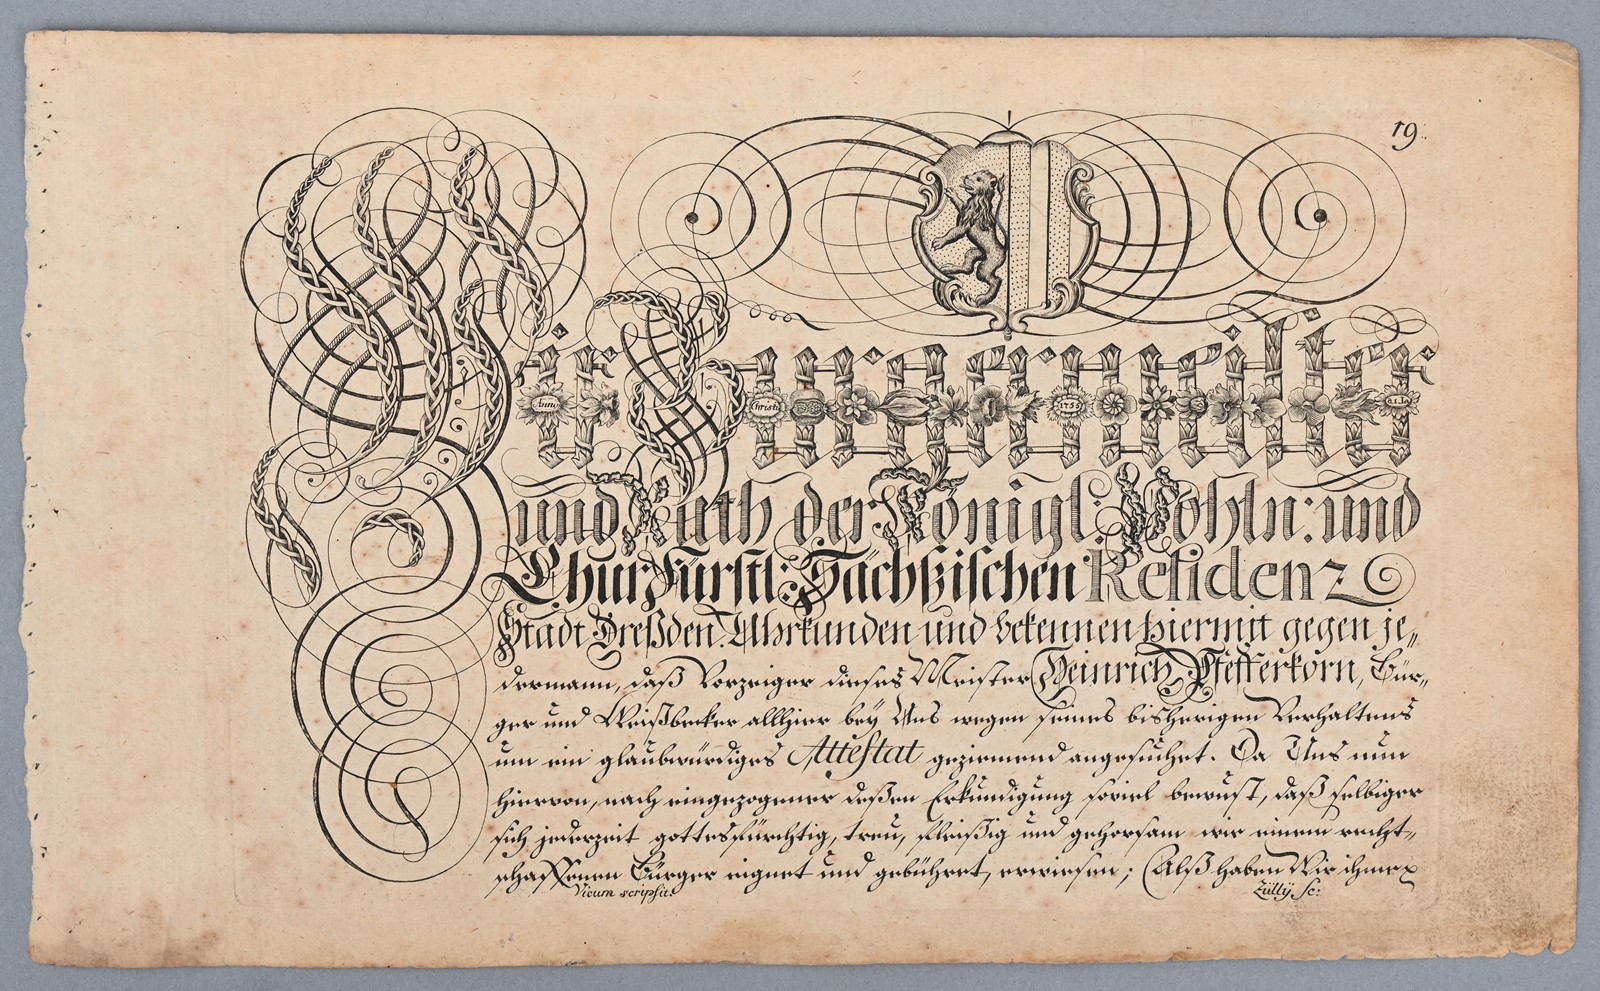 19.
Wir Burgermeister
Anno Christi 175
und Rath der Königl: Pohln: und
ChurFürstl: Sächßischen Residenz
Stadt Dreßden. Uhrkunden und bekennen hiermit gegen je„
dermann, daß Vorzeiger dieses Meister Heinrich Pfefferkorn, Bür„
ger und Weißbecker allhier bey Uns wegen seines bisherigen Verhaltens
um ein glaubwürdiges Attestat geziemend angesuchet. Da Uns nun
hiervon, nach eingezogener deßen Erkundigung soviel bewust, daß selbiger
sich jederzeit gottesfürchtig, treu, fleißig und gehorsam wie einem recht„
schaffenen Bürger eignet und gebühret, erwiesen; Alß haben Wir ihme
Vicum scripsit. Züllÿ sc: